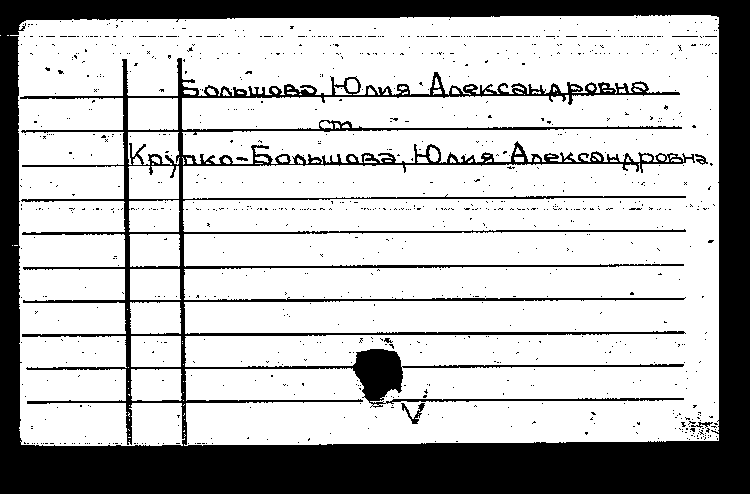 Большова, Юлия Александровна
см.
Крупко-Большова, Юлия Александровна.